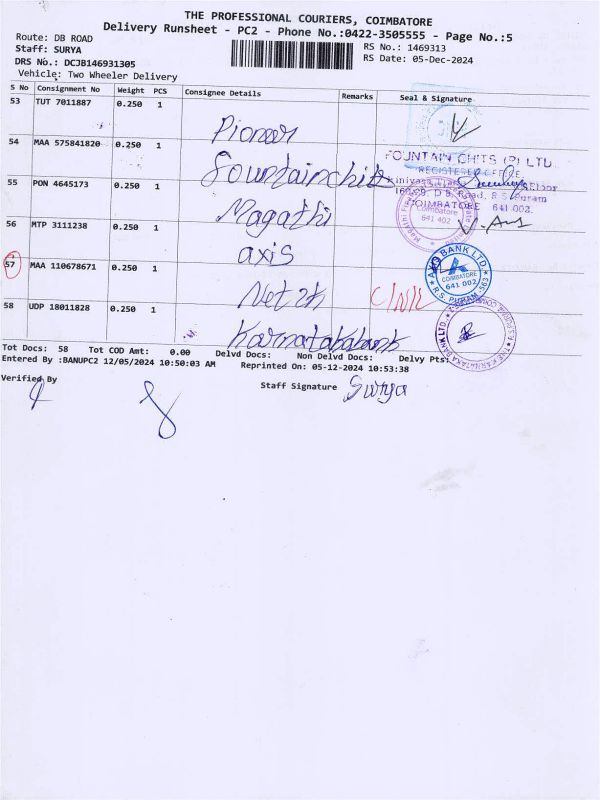 THE PROFESSIONAL COURIERS, COIMBATORE
Delivery Runsheet - PC2 - Phone No.:0422-3505555 - Page No.:5
Route: DB ROAD
Staff: SURYA
DRS No.: DCJB146931305
Vehicle: Two Wheeler Delivery
RS No.: 1469313
RS Date: 05-Dec-2024
S No Consignment No Weight PCS Consignee Details Remarks Seal & Signature
53 TUT 7011887 0.250 1 Pioneer
54 MAA 575841820 0.250 1 Fountainchits
FOUNTAIN CHITS (P) LTD.
REGISTERED OFFICE
Floor
D.B. Road, R.S. Puram
COIMBATORE 641 002.
55 PON 4645173 0.250 1 Magathi
Coimbatore
641 402
56 MTP 3111238 0.250 1 axis
AXIS BANK LTD.
COIMBATORE
641 002
R.S. PURAM
57 MAA 110678671 0.250 1
58 UDP 18011828 0.250 1 Karnatakabank
THE KARNATAKA BANK LTD.
Tot Docs: 58 Tot COD Amt: 0.00 Delvd Docs: Non Delvd Docs: Delvy Pts:
Entered By :BANUPC2 12/05/2024 10:50:03 AM Reprinted On: 05-12-2024 10:53:38
Verified By
Staff Signature Surya